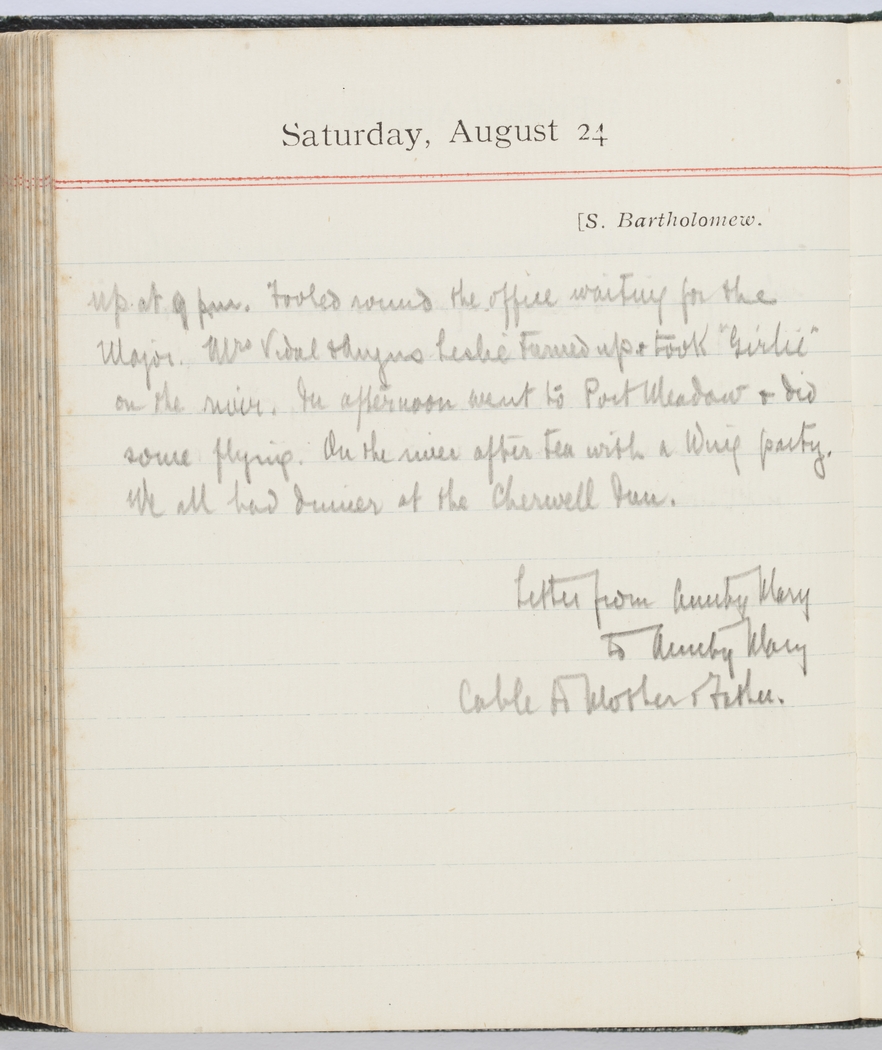 Saturday, August 24
[S. Bartholomew.
up at 9 pm. Fooled round the office waiting for the
Major. Mrs Vidal & Angus Leslie turned up & took "Girlie"
on the river. In afternoon went to Port Meadow & did
some flying. On the river after tea with a Wing party.
We all had dinner at the Cherwell Inn.
Letter from Aunty Mary
to Aunty Mary
Cable to Mother & Father.